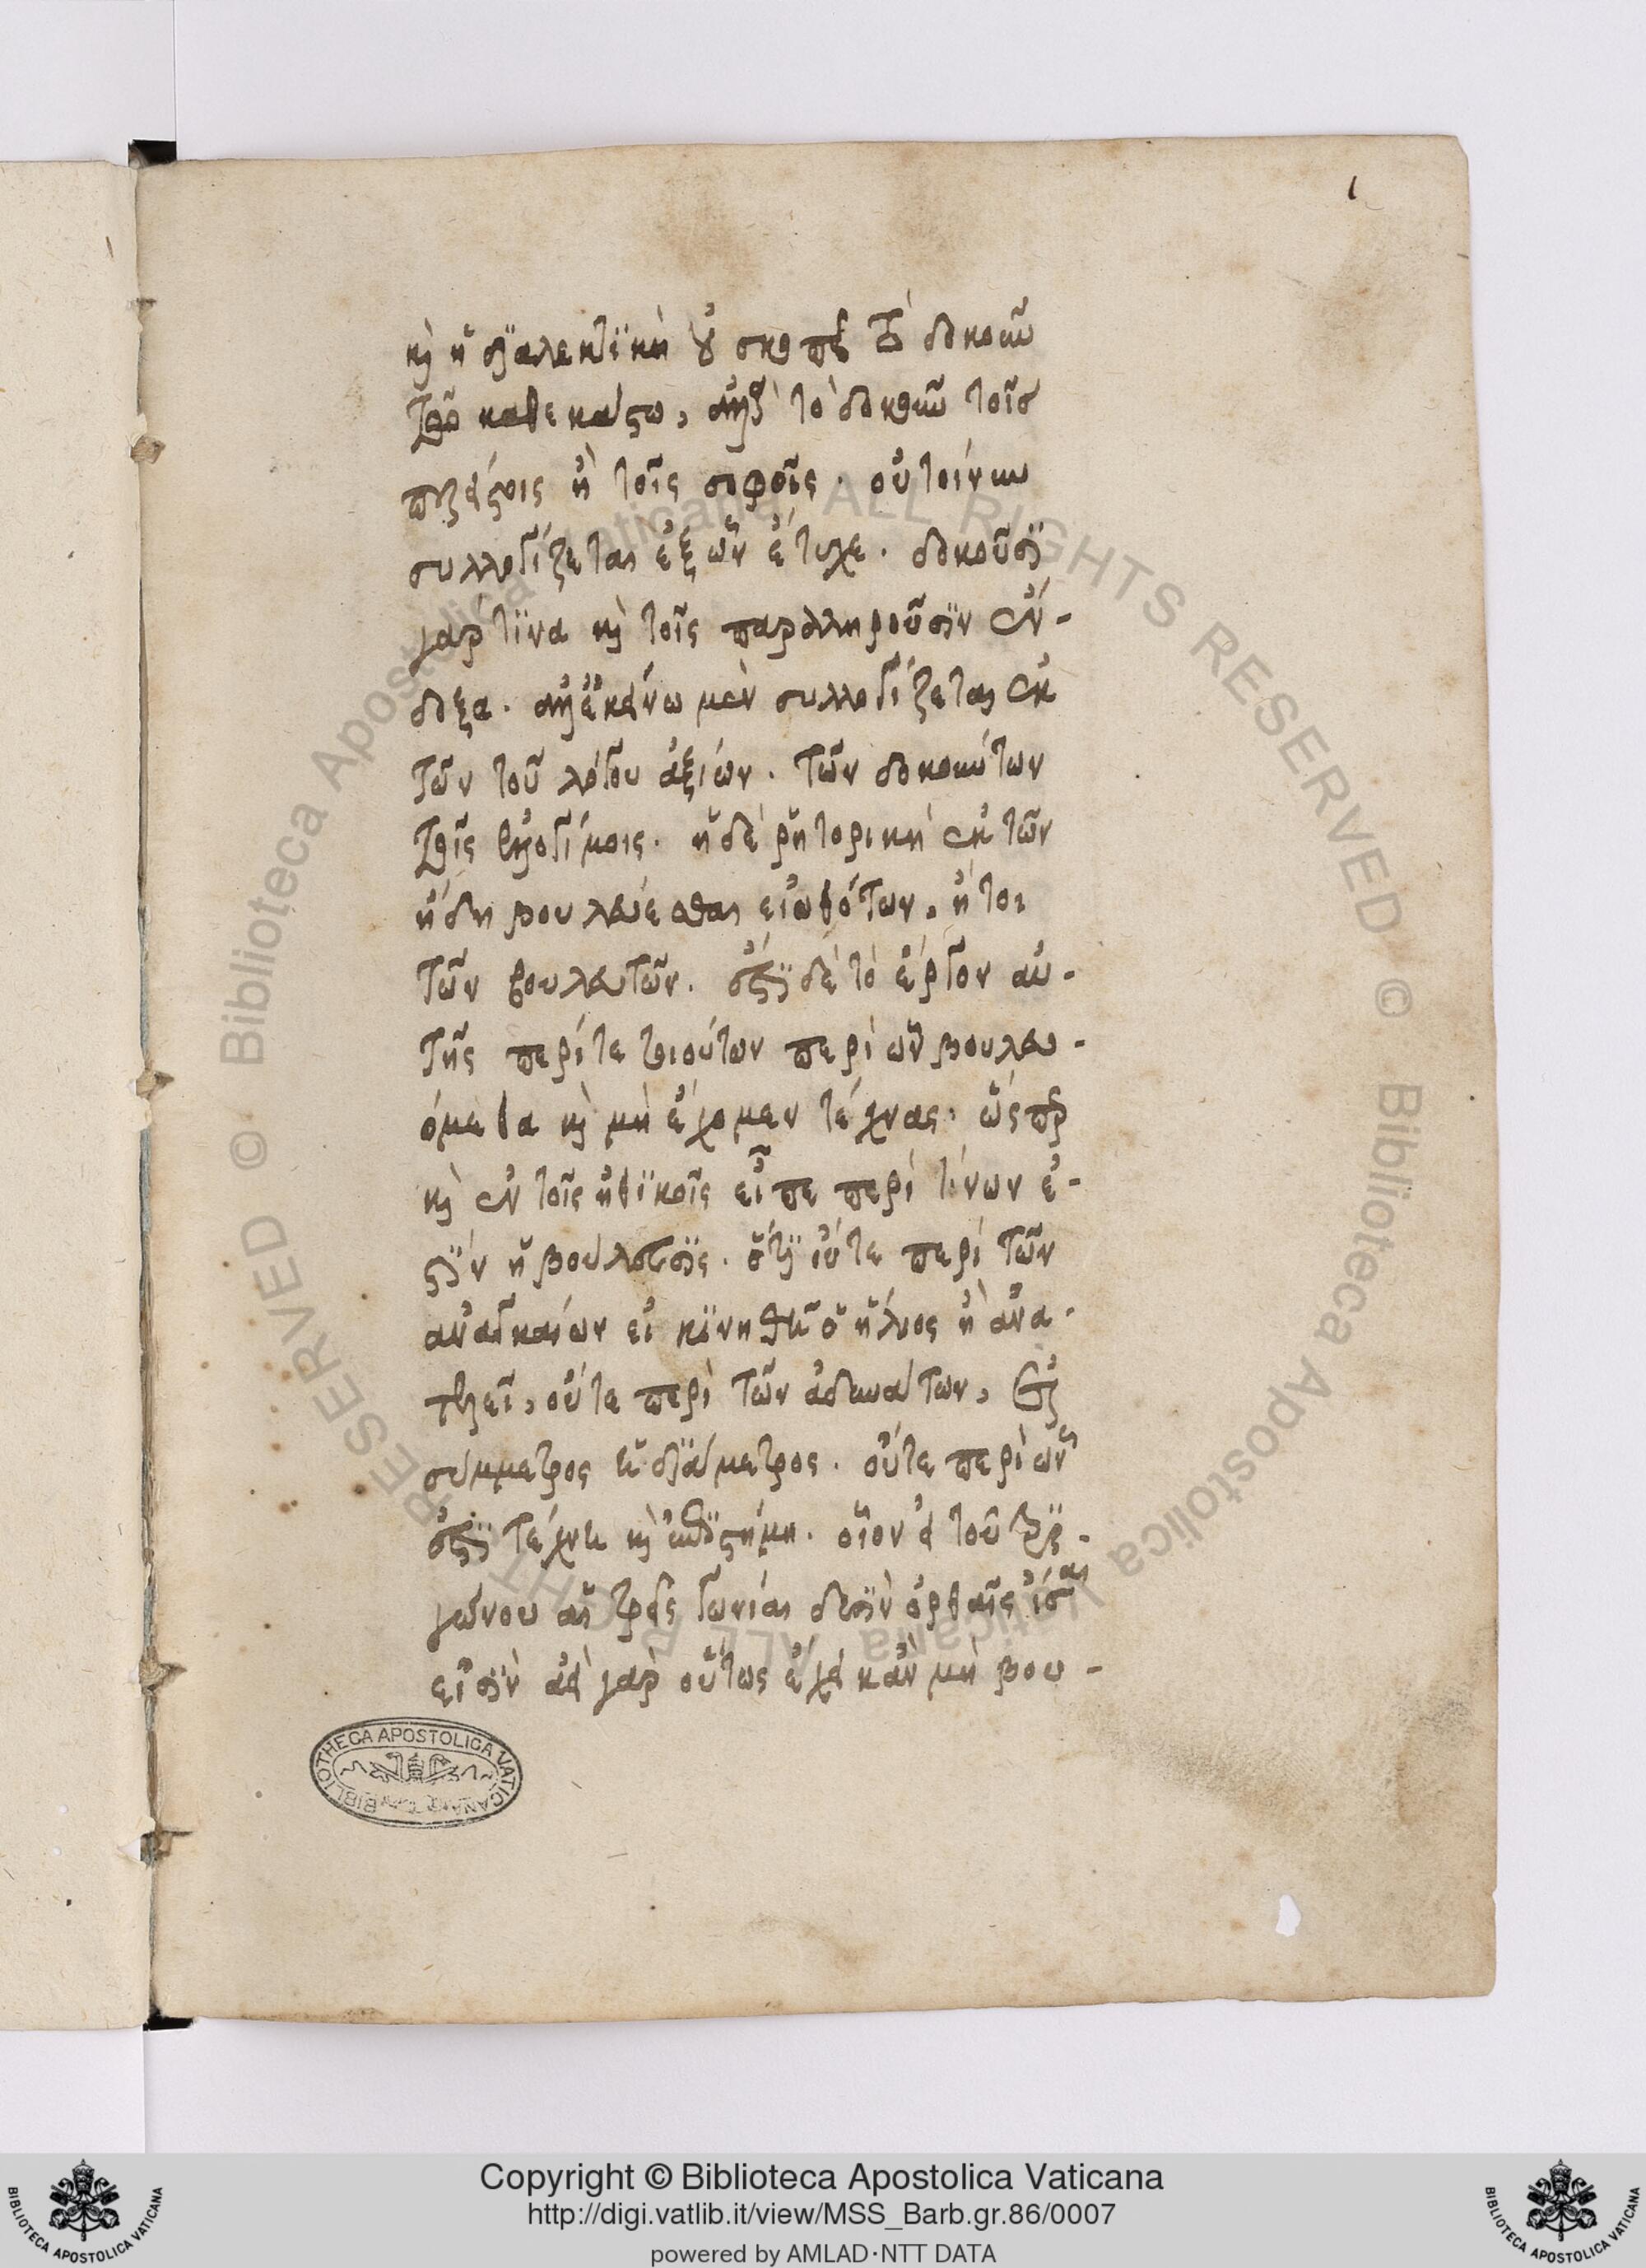 1
καὶ ἡ διαλεκτικὴ οὐ σκοπεῖ τὸ δοκοῦν
τῷ καθεκάστῳ, ἀλλὰ τὸ δοκοῦν τοῖς
πλείστοις ἢ τοῖς σοφοῖς. οὐ τοίνυν
συλλογίζεται ἐξ ὧν ἔτυχε. δοκοῦσι
γάρ τινα καὶ τοῖς παραληροῦσιν ἔν-
δοξα. ἀλλ' ἐκείνω μὲν συλλογίζεται ἐκ
τῶν τοῦ λόγου ἀξίων. τῶν δοκούντων
τοῖς. ἡ δὲ ῥητορικὴ ἐκ τῶν
ἤδη βουλεύεσθαι εἰωθότων, ἤτοι
τῶν βουλευτῶν. ἔστι δὲ τὸ ἔργον αὐ-
τῆς περί τε τοιούτων περὶ ὧν βουλευ-
όμεθα καὶ μὴ ἔχομεν τέχνας, ὥσπερ
καὶ ἐν τοῖς ἠθικοῖς εἶπε περὶ τίνων ἐ-
στὶν ἡ βούλευσις. ὅτι οὔτε περὶ τῶν
ἀναγκαίων εἰ κινηθῇ ὁ ἥλιος ἢ ἀνα-
τελεῖ, οὔτε περὶ τῶν ἀδυνάτων, εἰ
σύμμετρος ἡ διάμετρος. οὔτε περὶ ὧν
ἔστι τέχνη καὶ ἐπιστήμη. οἷον εἰ τοῦ τρι-
γώνου αἱ τρεῖς γωνίαι δυσὶν ὀρθαῖς ἴσαι
εἰσὶν ἀεὶ γὰρ οὕτως ἔχει κἂν μὴ βου-
BIBLIOTHECA APOSTOLICA VATICANA
© Biblioteca Apostolica Vaticana ALL RIGHTS RESERVED
© Biblioteca Apostolica Vaticana ALL RIGHTS RESERVED
Copyright © Biblioteca Apostolica Vaticana
http://digi.vatlib.it/view/MSS_Barb.gr.86/0007
powered by AMLAD·NTT DATA
BIBLIOTECA APOSTOLICA VATICANA
BIBLIOTECA APOSTOLICA VATICANA